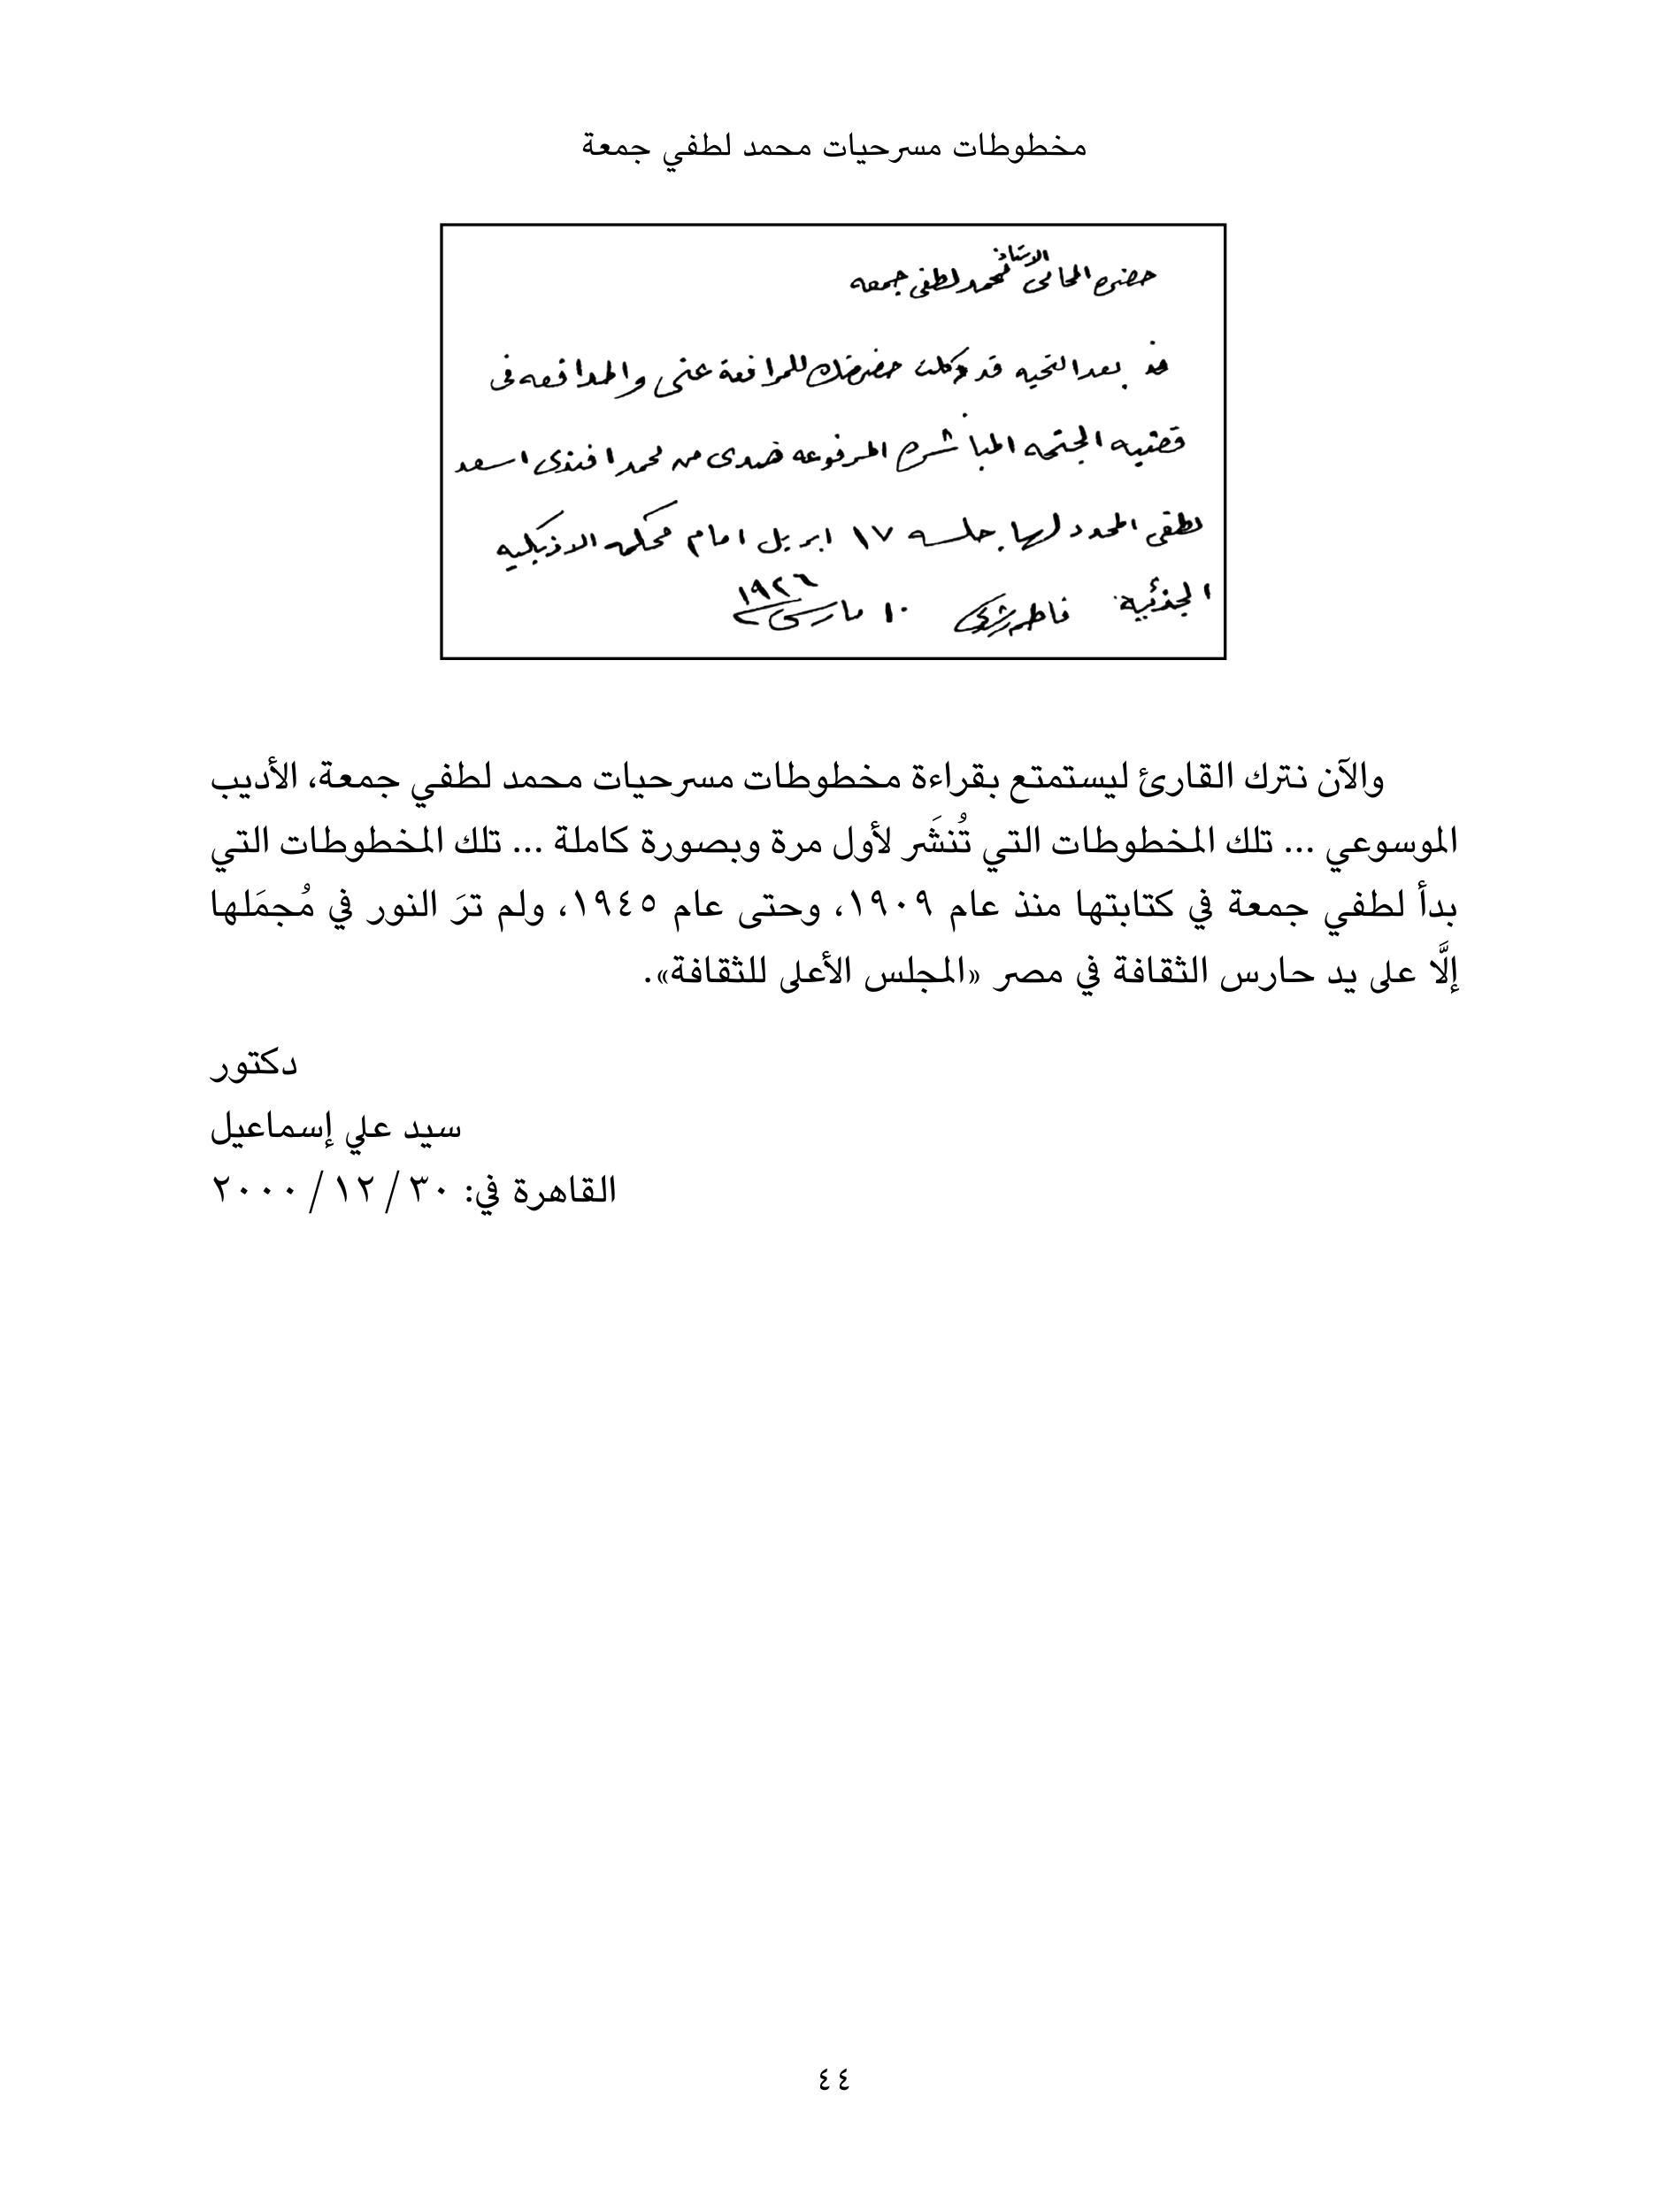 مخطوطات مسرحيات محمد لطفي جمعة
الاستاذ
حضره المحامى محمد لطفى جمعه
بعد التحيه قد وكلت حضرتك للمرافعة عنى والمدافعه فى
قضيه الجنحه المباشره المرفوعه ضدى من محمد افندى اسعد
لطفى المحدد لها جلسه ١٧ ابريل امام محكمه الازبكيه
الجزئية فاطمه رشدى ١٠ مارس ١٩٢٦
والآن نترك القارئ ليستمتع بقراءة مخطوطات مسرحيات محمد لطفي جمعة، الأديب
الموسوعي … تلك المخطوطات التي تُنشَر لأول مرة وبصورة كاملة … تلك المخطوطات التي
بدأ لطفي جمعة في كتابتها منذ عام ١٩٠٩، وحتى عام ١٩٤٥، ولم ترَ النور في مُجمَلها
إلَّا على يد حارس الثقافة في مصر «المجلس الأعلى للثقافة».
دكتور
سيد علي إسماعيل
القاهرة في: ٣٠/١٢/٢٠٠٠
٤٤